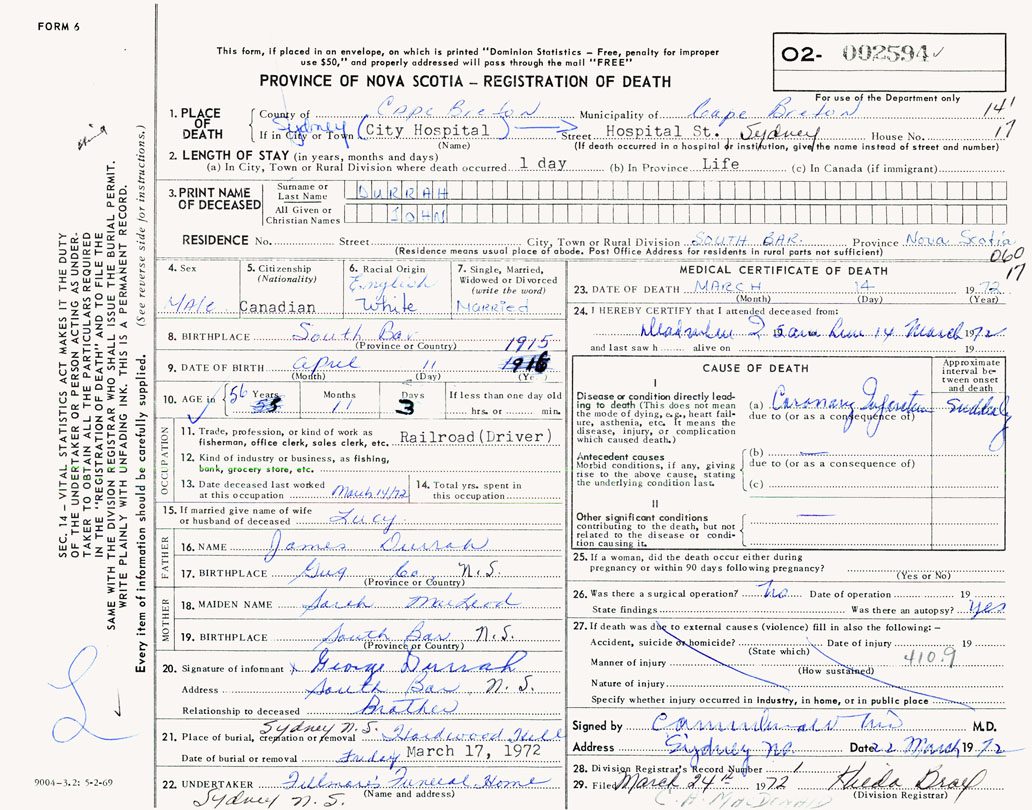 FORM 6
This form, if placed in an envelope, on which is printed "Dominion Statistics – Free, penalty for improper
use $50," and properly addressed will pass through the mail "FREE"
PROVINCE OF NOVA SCOTIA – REGISTRATION OF DEATH
O2- 002594
For use of the Department only
141
17
1. PLACE OF DEATH
County of Cape Breton Municipality of Cape Breton
If in City or Town Sydney (City Hospital) Street Hospital St. Sydney House No.
(Name) (If death occurred in a hospital or institution, give the name instead of street and number)
2. LENGTH OF STAY (in years, months and days)
(a) In City, Town or Rural Division where death occurred 1 day (b) In Province Life (c) In Canada (if immigrant)
3. PRINT NAME OF DECEASED
Surname or Last Name DURRAH
All Given or Christian Names JOHN
RESIDENCE No. Street City, Town or Rural Division SOUTH BAR. Province Nova Scotia
(Residence means usual place of abode. Post Office Address for residents in rural parts not sufficient)
060
17
4. Sex Male
5. Citizenship (Nationality) Canadian
6. Racial Origin English White
7. Single, Married, Widowed or Divorced (write the word) MARRIED
8. BIRTHPLACE South Bar
(Province or Country)
9. DATE OF BIRTH April 11 1915 1916
(Month) (Day) (Year)
10. AGE in 56 Years 55 Months 11 Days 3 If less than one day old hrs. or min.
OCCUPATION
11. Trade, profession, or kind of work as fishermen, office clerk, sales clerk, etc. Railroad (Driver)
12. Kind of industry or business, as fishing, bank, grocery store, etc.
13. Date deceased last worked at this occupation March 14/72
14. Total yrs. spent in this occupation
15. If married give name of wife or husband of deceased Lucy
FATHER
16. NAME James Durrah
17. BIRTHPLACE Guy Co. N.S.
(Province or Country)
MOTHER
18. MAIDEN NAME Sarah MacLeod
19. BIRTHPLACE South Bar N.S.
(Province or Country)
20. Signature of informant x George Durrah
Address South Bar, N.S.
Relationship to deceased Brother
21. Place of burial, cremation or removal Sydney N.S. Hardwood Hill
Date of burial or removal Friday March 17, 1972
22. UNDERTAKER Fillmore's Funeral Home
(Name and address)
Sydney N.S.
MEDICAL CERTIFICATE OF DEATH
23. DATE OF DEATH MARCH 14 1972
(Month) (Day) (Year)
24. I HEREBY CERTIFY that I attended deceased from:
14 March 1972
and last saw h alive on 19
CAUSE OF DEATH
Approximate interval between onset and death
I
Disease or condition directly leading to death (This does not mean the mode of dying, e.g., heart failure, asthenia, etc. It means the disease, injury, or complication which caused death.)
(a) Coronary Infarction Suddenly
due to (or as a consequence of)
Antecedent causes
Morbid conditions, if any, giving rise to the above cause, stating the underlying condition last.
(b)
due to (or as a consequence of)
(c)
II
Other significant conditions
contributing to the death, but not related to the disease or condition causing it.
25. If a woman, did the death occur either during pregnancy or within 90 days following pregnancy?
(Yes or No)
26. Was there a surgical operation? No Date of operation 19
State findings Was there an autopsy? Yes
27. If death was due to external causes (violence) fill in also the following: –
Accident, suicide or homicide? Date of injury 19
(State which)
Manner of injury 410.9
(How sustained)
Nature of injury
Specify whether injury occurred in industry, in home, or in public place
Signed by M.D.
Address Sydney NS. Date 22 March 1972
28. Division Registrar's Record Number
29. Filed March 24th 1972
(Division Registrar)
SEC. 14 – VITAL STATISTICS ACT MAKES IT THE DUTY
OF THE UNDERTAKER OR PERSON ACTING AS UNDER-
TAKER TO OBTAIN ALL THE PARTICULARS REQUIRED
IN THE "REGISTRATION OF DEATH" AND FILE THE
SAME WITH THE DIVISION REGISTRAR WHO SHALL ISSUE THE BURIAL PERMIT.
WRITE PLAINLY WITH UNFADING INK. THIS IS A PERMANENT RECORD.
Every item of information should be carefully supplied. (See reverse side for instructions.)
9004-3.2: 5-2-69